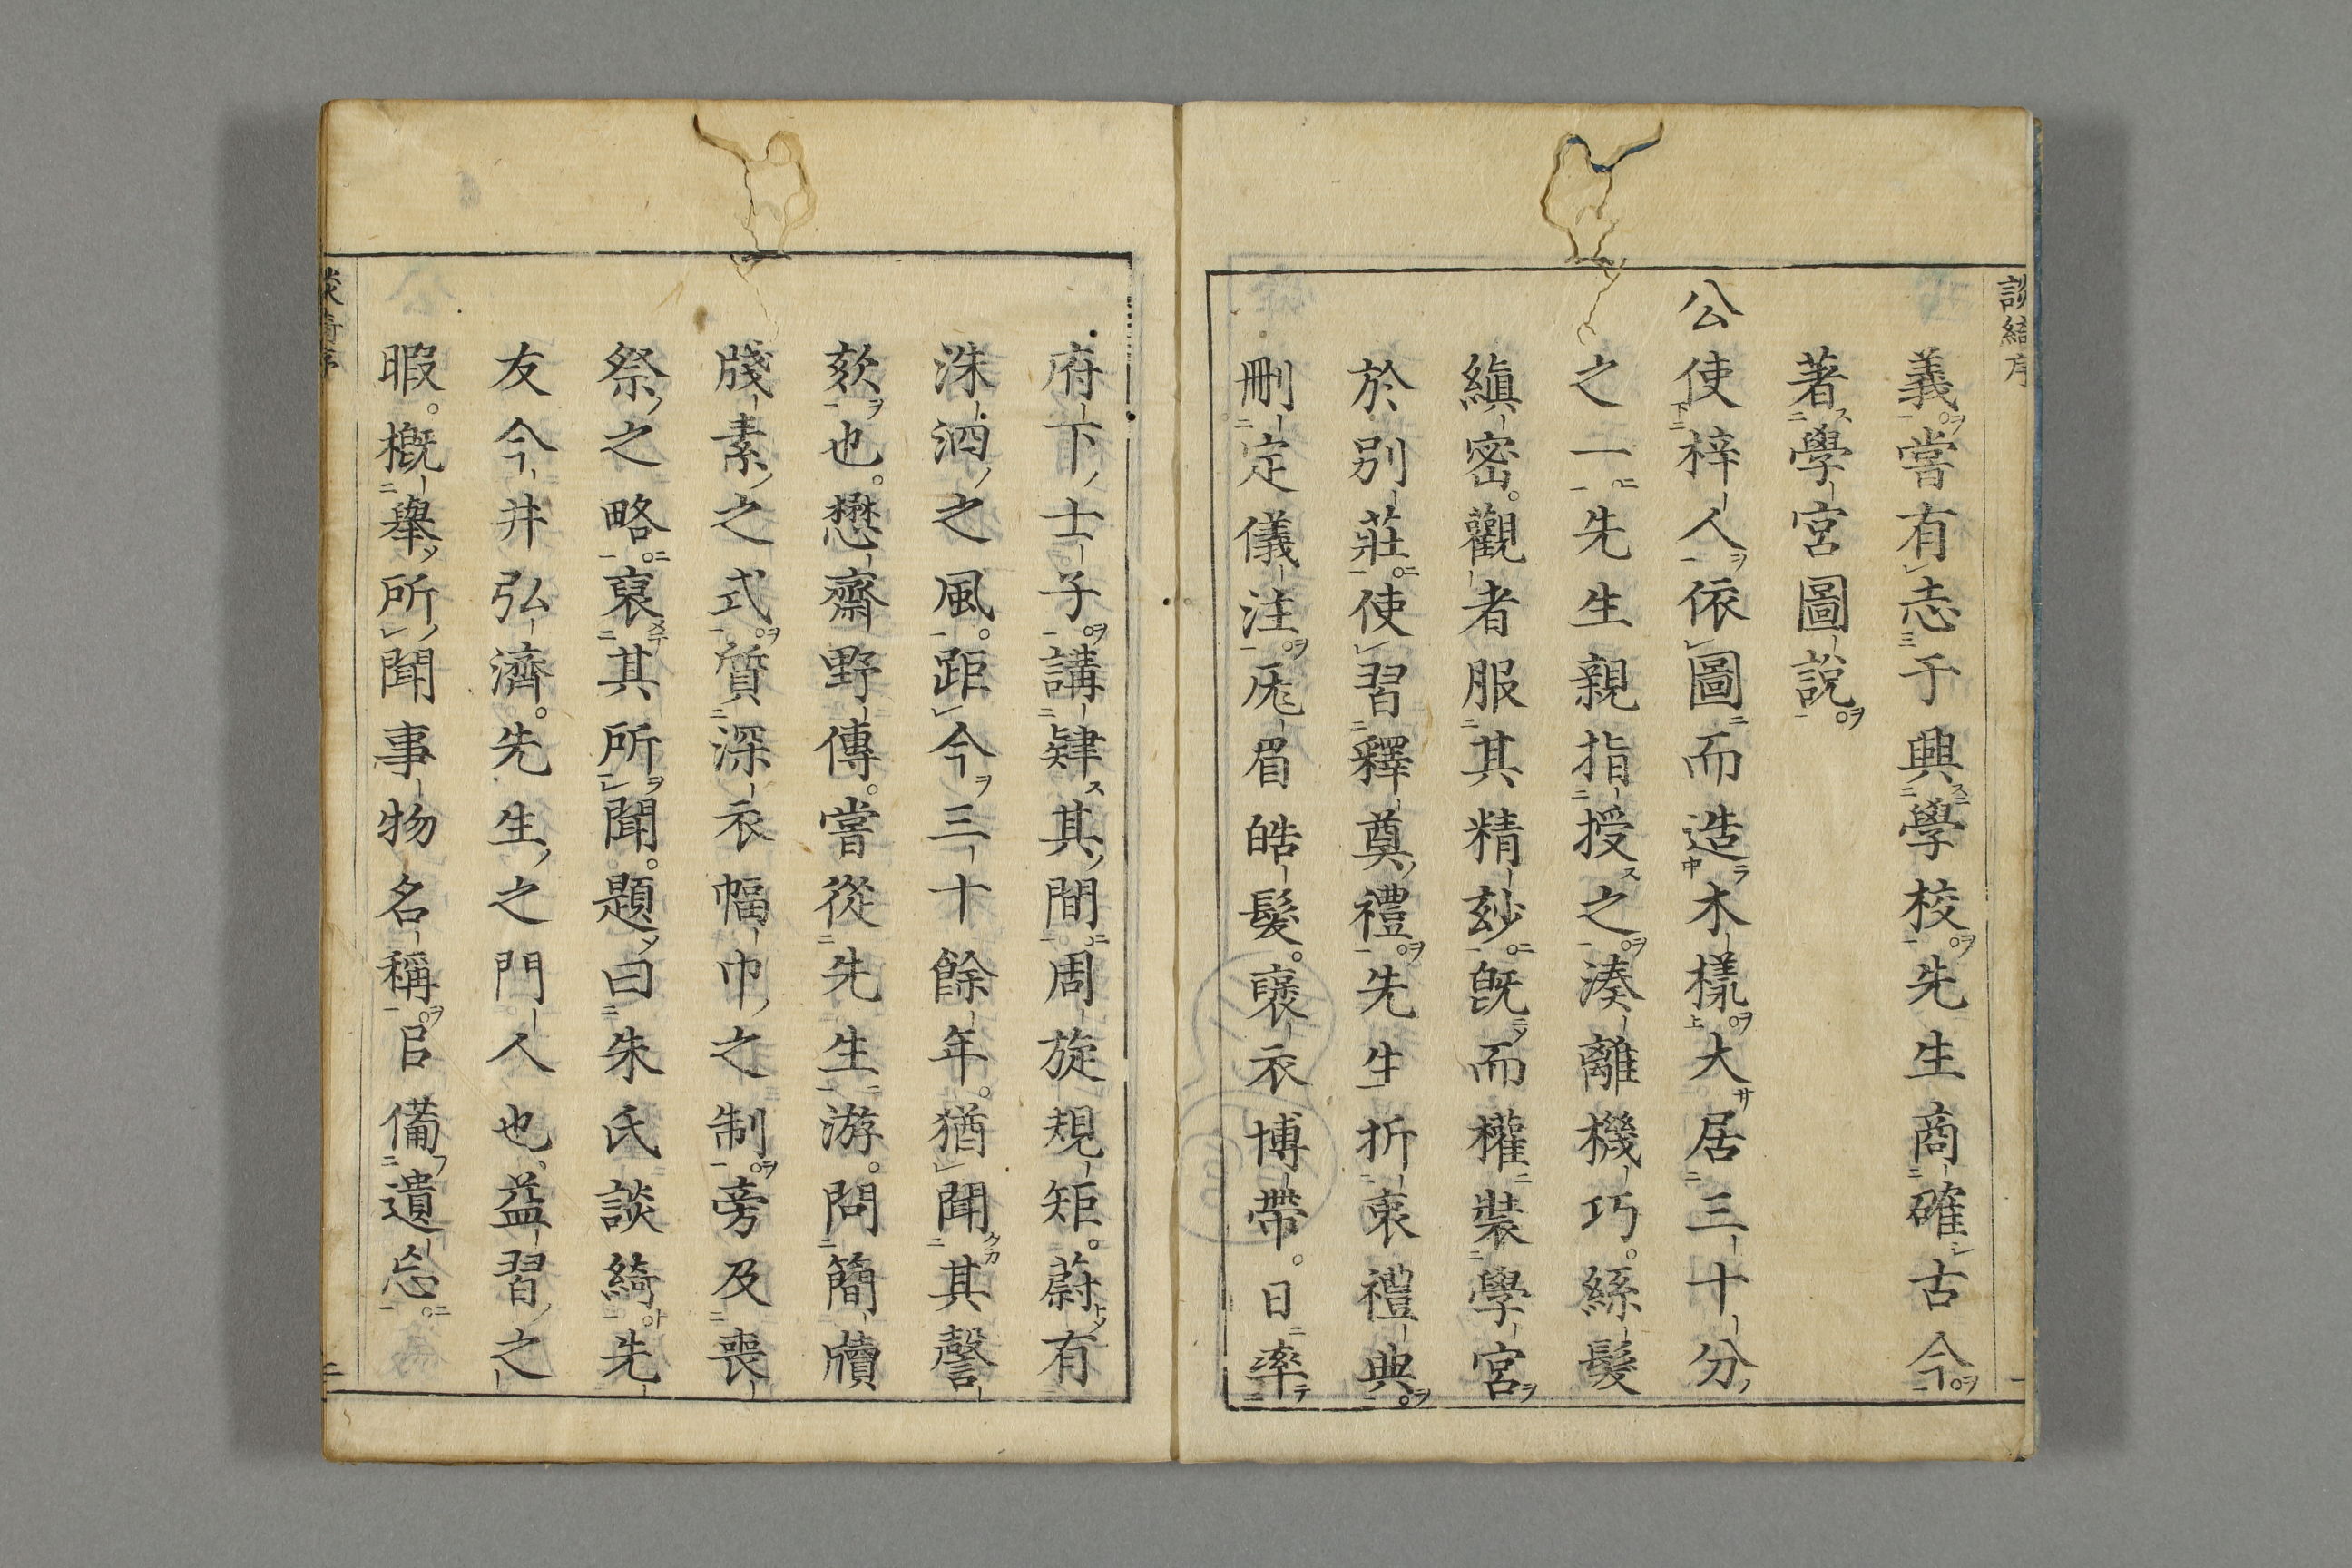 談綺序
義嘗有志于興學校先生商確古今
著學宮圖說
公使梓人依圖而造木樣大居三十分
之一先生親指授之湊離機巧絲髮
縝密觀者服其精玅既而權裝學宮
於別莊使習釋奠禮先生折衷禮典
刪定儀注厖眉皓髮褒衣博帶日率
一
府下士子講肄其間周旋規矩蔚有
洙泗之風距今三十餘年猶聞其謦
欬也懋齋野傳嘗從先生游問簡牘
牋素之式質深衣幅巾之制旁及喪
祭之略裒其所聞題曰朱氏談綺先
友今井弘濟先生之門人也益習之
暇概舉所聞事物名稱㠯備遺忘
二